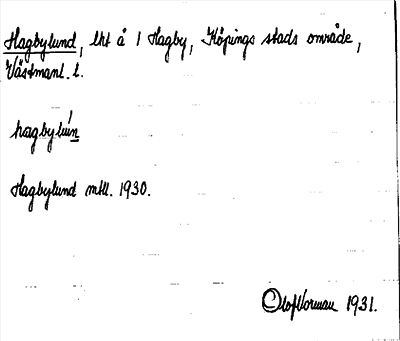 Hagbylund, lht å 1 Hagby, Köpings stads område,
Västmanl. l.
hagbylúin
Hagbylund mtl. 1930.
Olof Norman 1931.